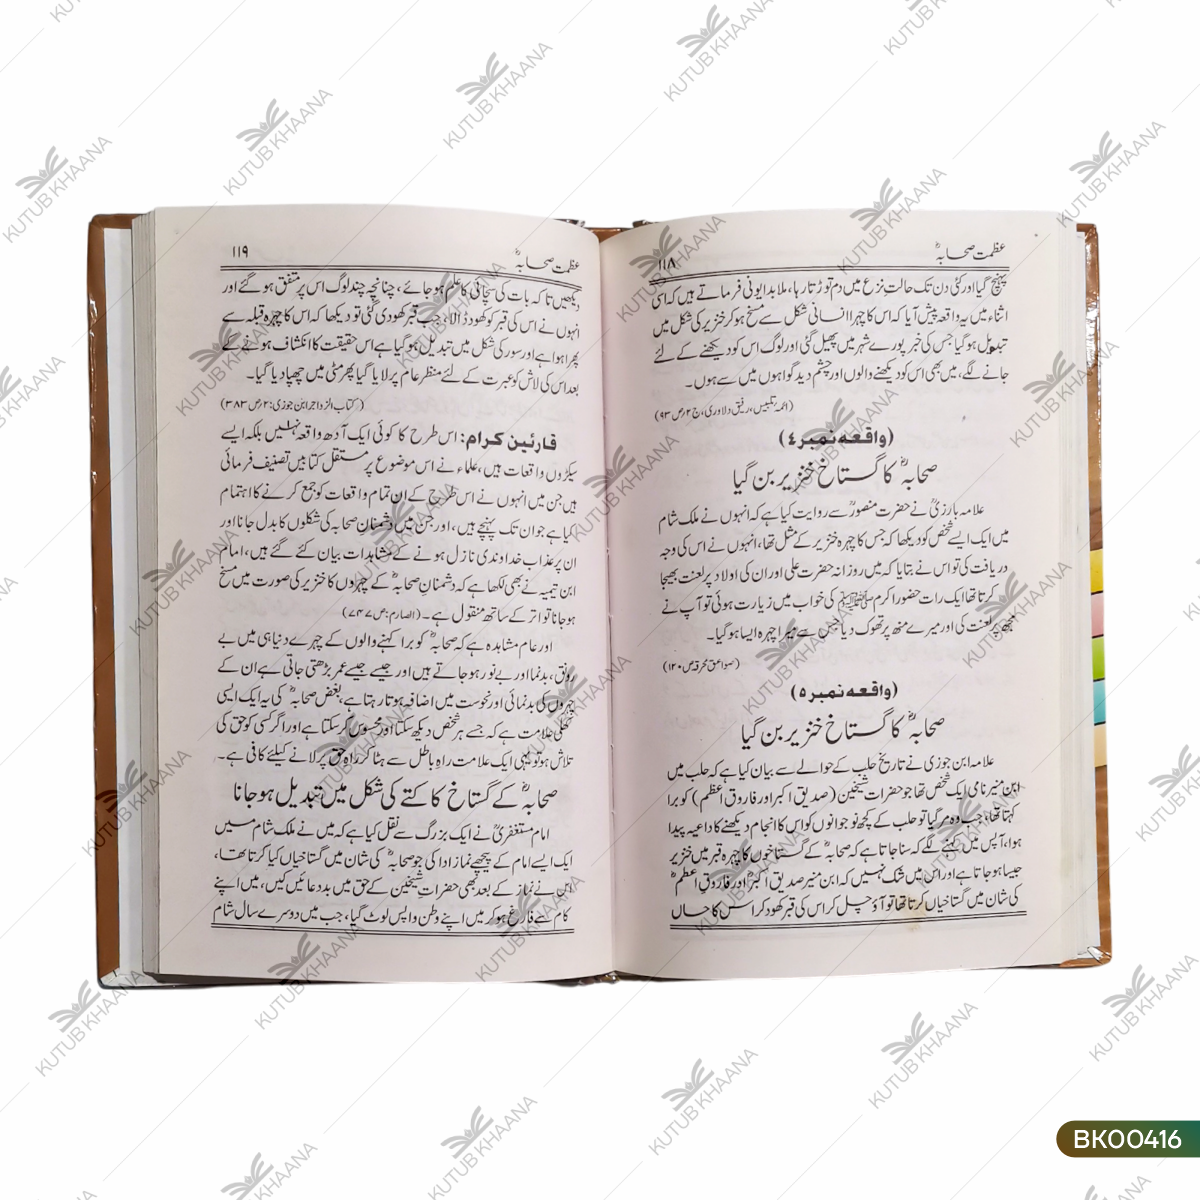 عظمت صحابہؓ
۱۱۸
پہنچ گیا اور کئی دن تک حالتِ نزع میں دم توڑتا رہا، ملا بدایونی فرماتے ہیں کہ اسی
اثناء میں یہ واقعہ پیش آیا کہ اس کا چہرا انسانی شکل سے مسخ ہو کر خنزیر کی شکل میں
تبدیل ہو گیا جس کی خبر پورے شہر میں پھیل گئی اور لوگ اس کو دیکھنے کے لئے
جانے لگے، میں بھی اس کو دیکھنے والوں اور چشم دید گواہوں میں سے ہوں۔
(ائمہ تلبیس، رفیق دلاوری، ج ۲ ص ۹۳)
(واقعہ نمبر ۴)
صحابہؓ کا گستاخ خنزیر بن گیا
علامہ بارزیؒ نے حضرت منصورؒ سے روایت کیا ہے کہ انہوں نے ملک شام
میں ایک ایسے شخص کو دیکھا کہ جس کا چہرہ خنزیر کے مثل تھا، انہوں نے اس کی وجہ
دریافت کی تو اس نے بتایا کہ میں روزانہ حضرت علی اور ان کی اولاد پر لعنت بھیجا
کرتا تھا ایک رات حضور اکرم ﷺ کی خواب میں زیارت ہوئی تو آپ نے
مجھ پر لعنت کی اور میرے منھ پر تھوک دیا جس سے میرا چہرہ ایسا ہو گیا۔
(صواعق محرقہ ص ۱۲۰)
(واقعہ نمبر ۵)
صحابہؓ کا گستاخ خنزیر بن گیا
علامہ ابن جوزی نے تاریخ حلب کے حوالے سے بیان کیا ہے کہ حلب میں
ابن منیر نامی ایک شخص تھا جو حضرات شیخین (صدیق اکبر اور فاروق اعظم) کو برا
کہتا تھا، جب وہ مر گیا تو حلب کے کچھ نوجوانوں کو اس کا انجام دیکھنے کا داعیہ پیدا
ہوا، آپس میں کہنے لگے کہ سنا جاتا ہے کہ صحابہؓ کے گستاخوں کا چہرہ قبر میں خنزیر
جیسا ہو جاتا ہے اور اس میں شک نہیں کہ ابن منیر صدیق اکبرؓ اور فاروق اعظمؓ
کی شان میں گستاخیاں کرتا تھا تو آؤ چل کر اس کی قبر کھود کر اس کا حال
عظمت صحابہؓ
۱۱۹
دیکھیں تا کہ بات کی سچائی کا علم ہو جائے، چنانچہ چند لوگ اس پر متفق ہو گئے اور
انہوں نے اس کی قبر کو کھود ڈالا، جب قبر کھودی گئی تو دیکھا کہ اس کا چہرہ قبلہ سے
پھرا ہوا ہے اور سور کی شکل میں تبدیل ہو گیا ہے اس حقیقت کا انکشاف ہونے کے
بعد اس کی لاش کو عبرت کے لئے منظر عام پر لایا گیا پھر مٹی میں چھپا دیا گیا۔
(کتاب الزواجر ابن جوزی: ۲ ص ۳۸۳)
قارئین کرام: اس طرح کا کوئی ایک آدھ واقعہ نہیں بلکہ ایسے
سیکڑوں واقعات ہیں، علماء نے اس موضوع پر مستقل کتابیں تصنیف فرمائی
ہیں جن میں انہوں نے اس طرح کے ان تمام واقعات کو جمع کرنے کا اہتمام
کیا ہے جو ان تک پہنچے ہیں، اور جن میں دشمنانِ صحابہ کی شکلوں کا بدل جانا اور
ان پر عذاب خداوندی نازل ہونے کے مشاہدات بیان کئے گئے ہیں، امام
ابن تیمیہ نے بھی لکھا ہے کہ دشمنانِ صحابہؓ کے چہروں کا خنزیر کی صورت میں مسخ
ہو جانا تواتر کے ساتھ منقول ہے۔ (الصارم: ص ۷۴۷)
اور عام مشاہدہ ہے کہ صحابہؓ کو برا کہنے والوں کے چہرے دنیا ہی میں بے
رونق، بدنما اور بے نور ہو جاتے ہیں اور جیسے جیسے عمر بڑھتی جاتی ہے ان کے
چہروں کی بدنمائی اور نحوست میں اضافہ ہوتا رہتا ہے، بغض صحابہؓ کی یہ ایک ایسی
کھلی علامت ہے کہ جسے ہر شخص دیکھ سکتا اور محسوس کر سکتا ہے اور اگر کسی کو حق کی
تلاش ہو تو یہی ایک علامت راہِ باطل سے ہٹا کر راہِ حق پر لانے کیلئے کافی ہے۔
صحابہؓ کے گستاخ کا کتے کی شکل میں تبدیل ہو جانا
امام مستغفریؒ نے ایک بزرگ سے نقل کیا ہے کہ میں نے ملک شام میں
ایک ایسے امام کے پیچھے نماز ادا کی جو صحابہؓ کی شان میں گستاخیاں کیا کرتا تھا،
اس نے نماز کے بعد بھی حضراتِ شیخین کے حق میں بد دعائیں کیں، میں اپنے
کام سے فارغ ہو کر میں اپنے وطن واپس لوٹ گیا، جب میں دوسرے سال شام
KUTUB KHAANA
BK00416